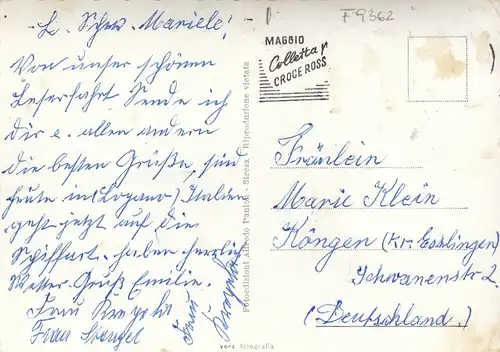 F9362
L. Schw. Mariele!
Von unser schönen
Leserfahrt Sende ich
dir u. allen andern
die besten Grüße, sind
heute in (Logano) Italien
geht jetzt auf die
Schiffart. haben herrlich
Wetter. Gruß Emilie.
Frau
Frau Stengel
Frau
MAGGIO
Colletta
CROCE ROSS
Fotoedizioni Alfredo Pantoli - Stresa - Riproduzione vietata
vera fotografia
Fräulein
Marie Klein
Köngen (Kr. Esslingen)
Schwanenstr 2
(Deutschland.)